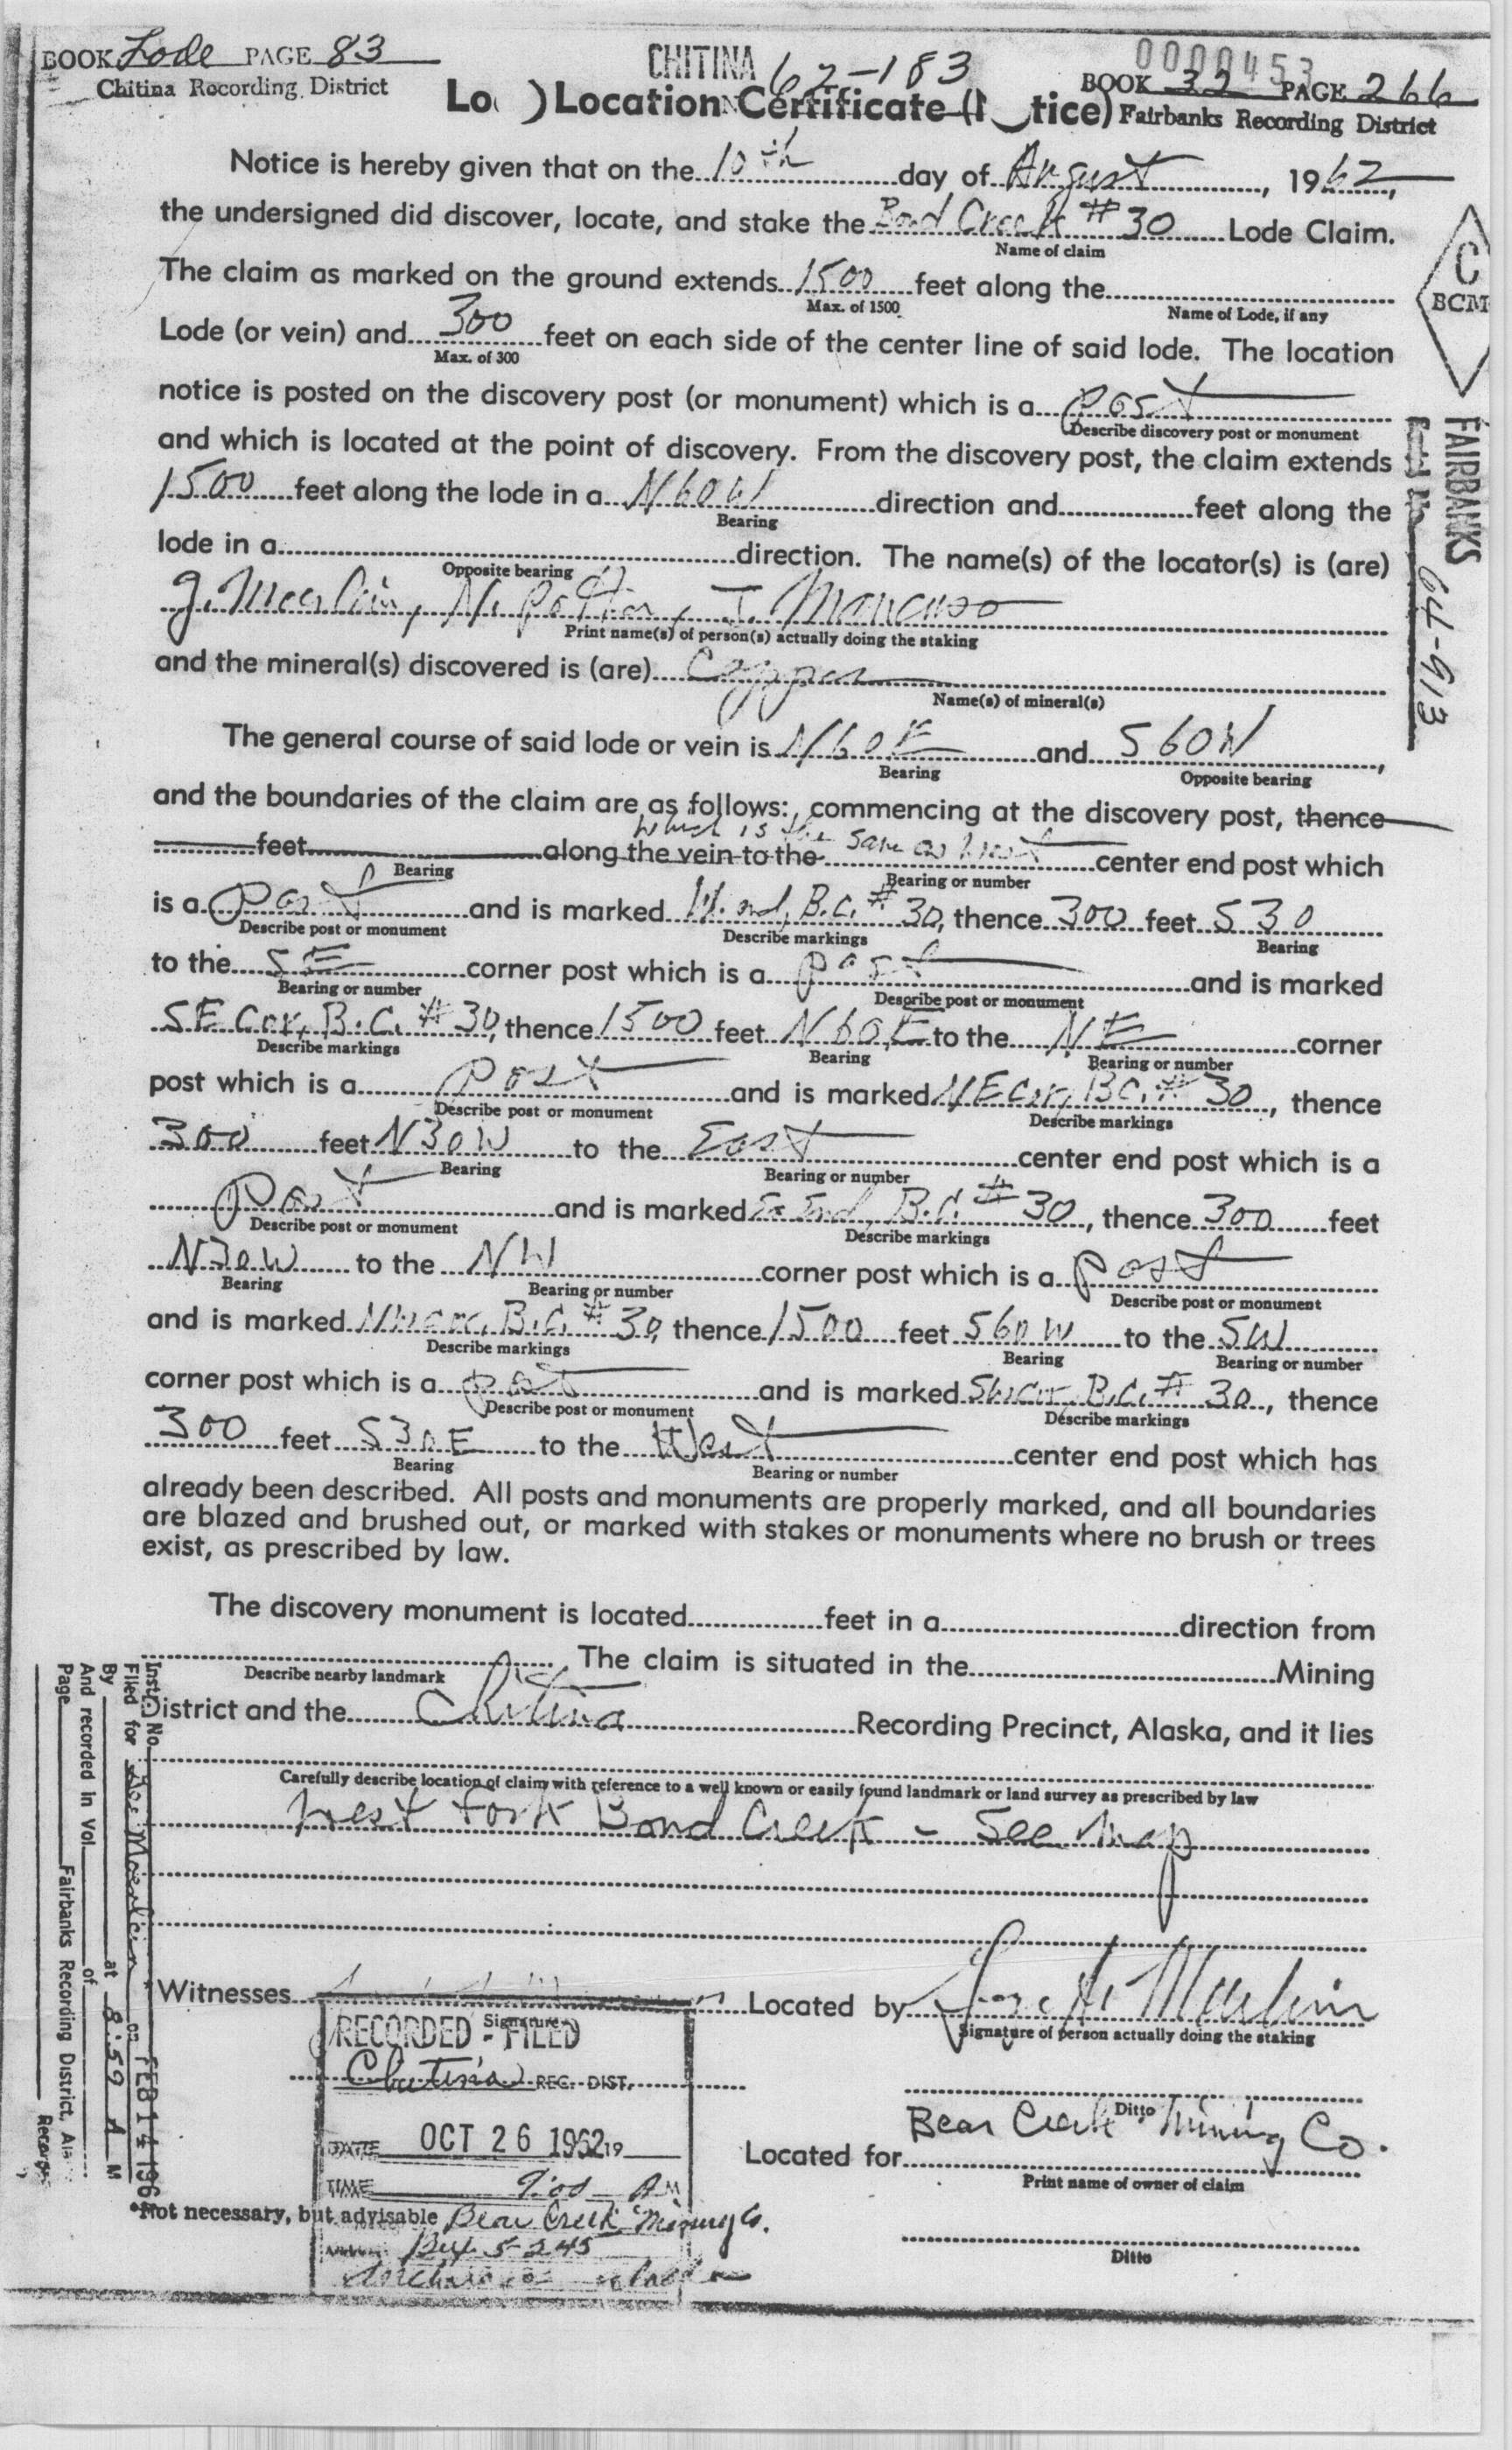 BOOK Lode PAGE 83
Chitina Recording District
CHITINA 62-183
0000453
BOOK 32 PAGE 266
Fairbanks Recording District
Lo( ) Location Certificate (N tice)
Notice is hereby given that on the 10th day of August, 1962,
the undersigned did discover, locate, and stake the Bond Creek #30 Lode Claim.
Name of claim
The claim as marked on the ground extends 1500 feet along the
Max. of 1500 Name of Lode, if any
Lode (or vein) and 300 feet on each side of the center line of said lode. The location
Max. of 300
notice is posted on the discovery post (or monument) which is a post
Describe discovery post or monument
and which is located at the point of discovery. From the discovery post, the claim extends
1500 feet along the lode in a N60W direction and feet along the
Bearing
lode in a direction. The name(s) of the locator(s) is (are)
Opposite bearing
J. Meerlein, N. Potter, J. Mancuso
Print name(s) of person(s) actually doing the staking
and the mineral(s) discovered is (are) Copper
Name(s) of mineral(s)
The general course of said lode or vein is N60E and S60W,
Bearing Opposite bearing
and the boundaries of the claim are as follows: commencing at the discovery post, thence
which is the same as west
feet along the vein to the center end post which
Bearing Bearing or number
is a Post and is marked W. end, B.C. #30, thence 300 feet S30
Describe post or monument Describe markings Bearing
to the SE corner post which is a post and is marked
Bearing or number Describe post or monument
SE Cor, B.C. #30, thence 1500 feet N60E to the NE corner
Describe markings Bearing Bearing or number
post which is a Post and is marked NE Cor, B.C. #30, thence
Describe post or monument Describe markings
300 feet N30W to the East center end post which is a
Bearing Bearing or number
Post and is marked E. End, B.C. #30, thence 300 feet
Describe post or monument Describe markings
N30W to the NW corner post which is a Post
Bearing Bearing or number Describe post or monument
and is marked NW cor, B.C. #30, thence 1500 feet S60W to the SW
Describe markings Bearing Bearing or number
corner post which is a post and is marked SW cor, B.C. #30, thence
Describe post or monument Describe markings
300 feet S30E to the West center end post which has
Bearing Bearing or number
already been described. All posts and monuments are properly marked, and all boundaries
are blazed and brushed out, or marked with stakes or monuments where no brush or trees
exist, as prescribed by law.
The discovery monument is located feet in a direction from
The claim is situated in the Mining
Describe nearby landmark
District and the Chitina Recording Precinct, Alaska, and it lies
Carefully describe location of claim with reference to a well known or easily found landmark or land survey as prescribed by law
West fork Bond Creek - See map
Witnesses Located by
Signature Signature of person actually doing the staking
RECORDED - FILED
Chitina REC. DIST.
DATE OCT 26 1962 19
TIME 9:00 AM
Ditto
Located for Bear Creek Mining Co.
Print name of owner of claim
*Not necessary, but advisable
Bear Creek Mining Co.
Box 5-245
Anchorage Alaska
Ditto
C
BCM
FAIRBANKS
64-913
Inst. No.
Filed for Joe Meerlein
on FEB 14 196
By at 8:59 A M
And recorded in Vol. of
Page Fairbanks Recording District,